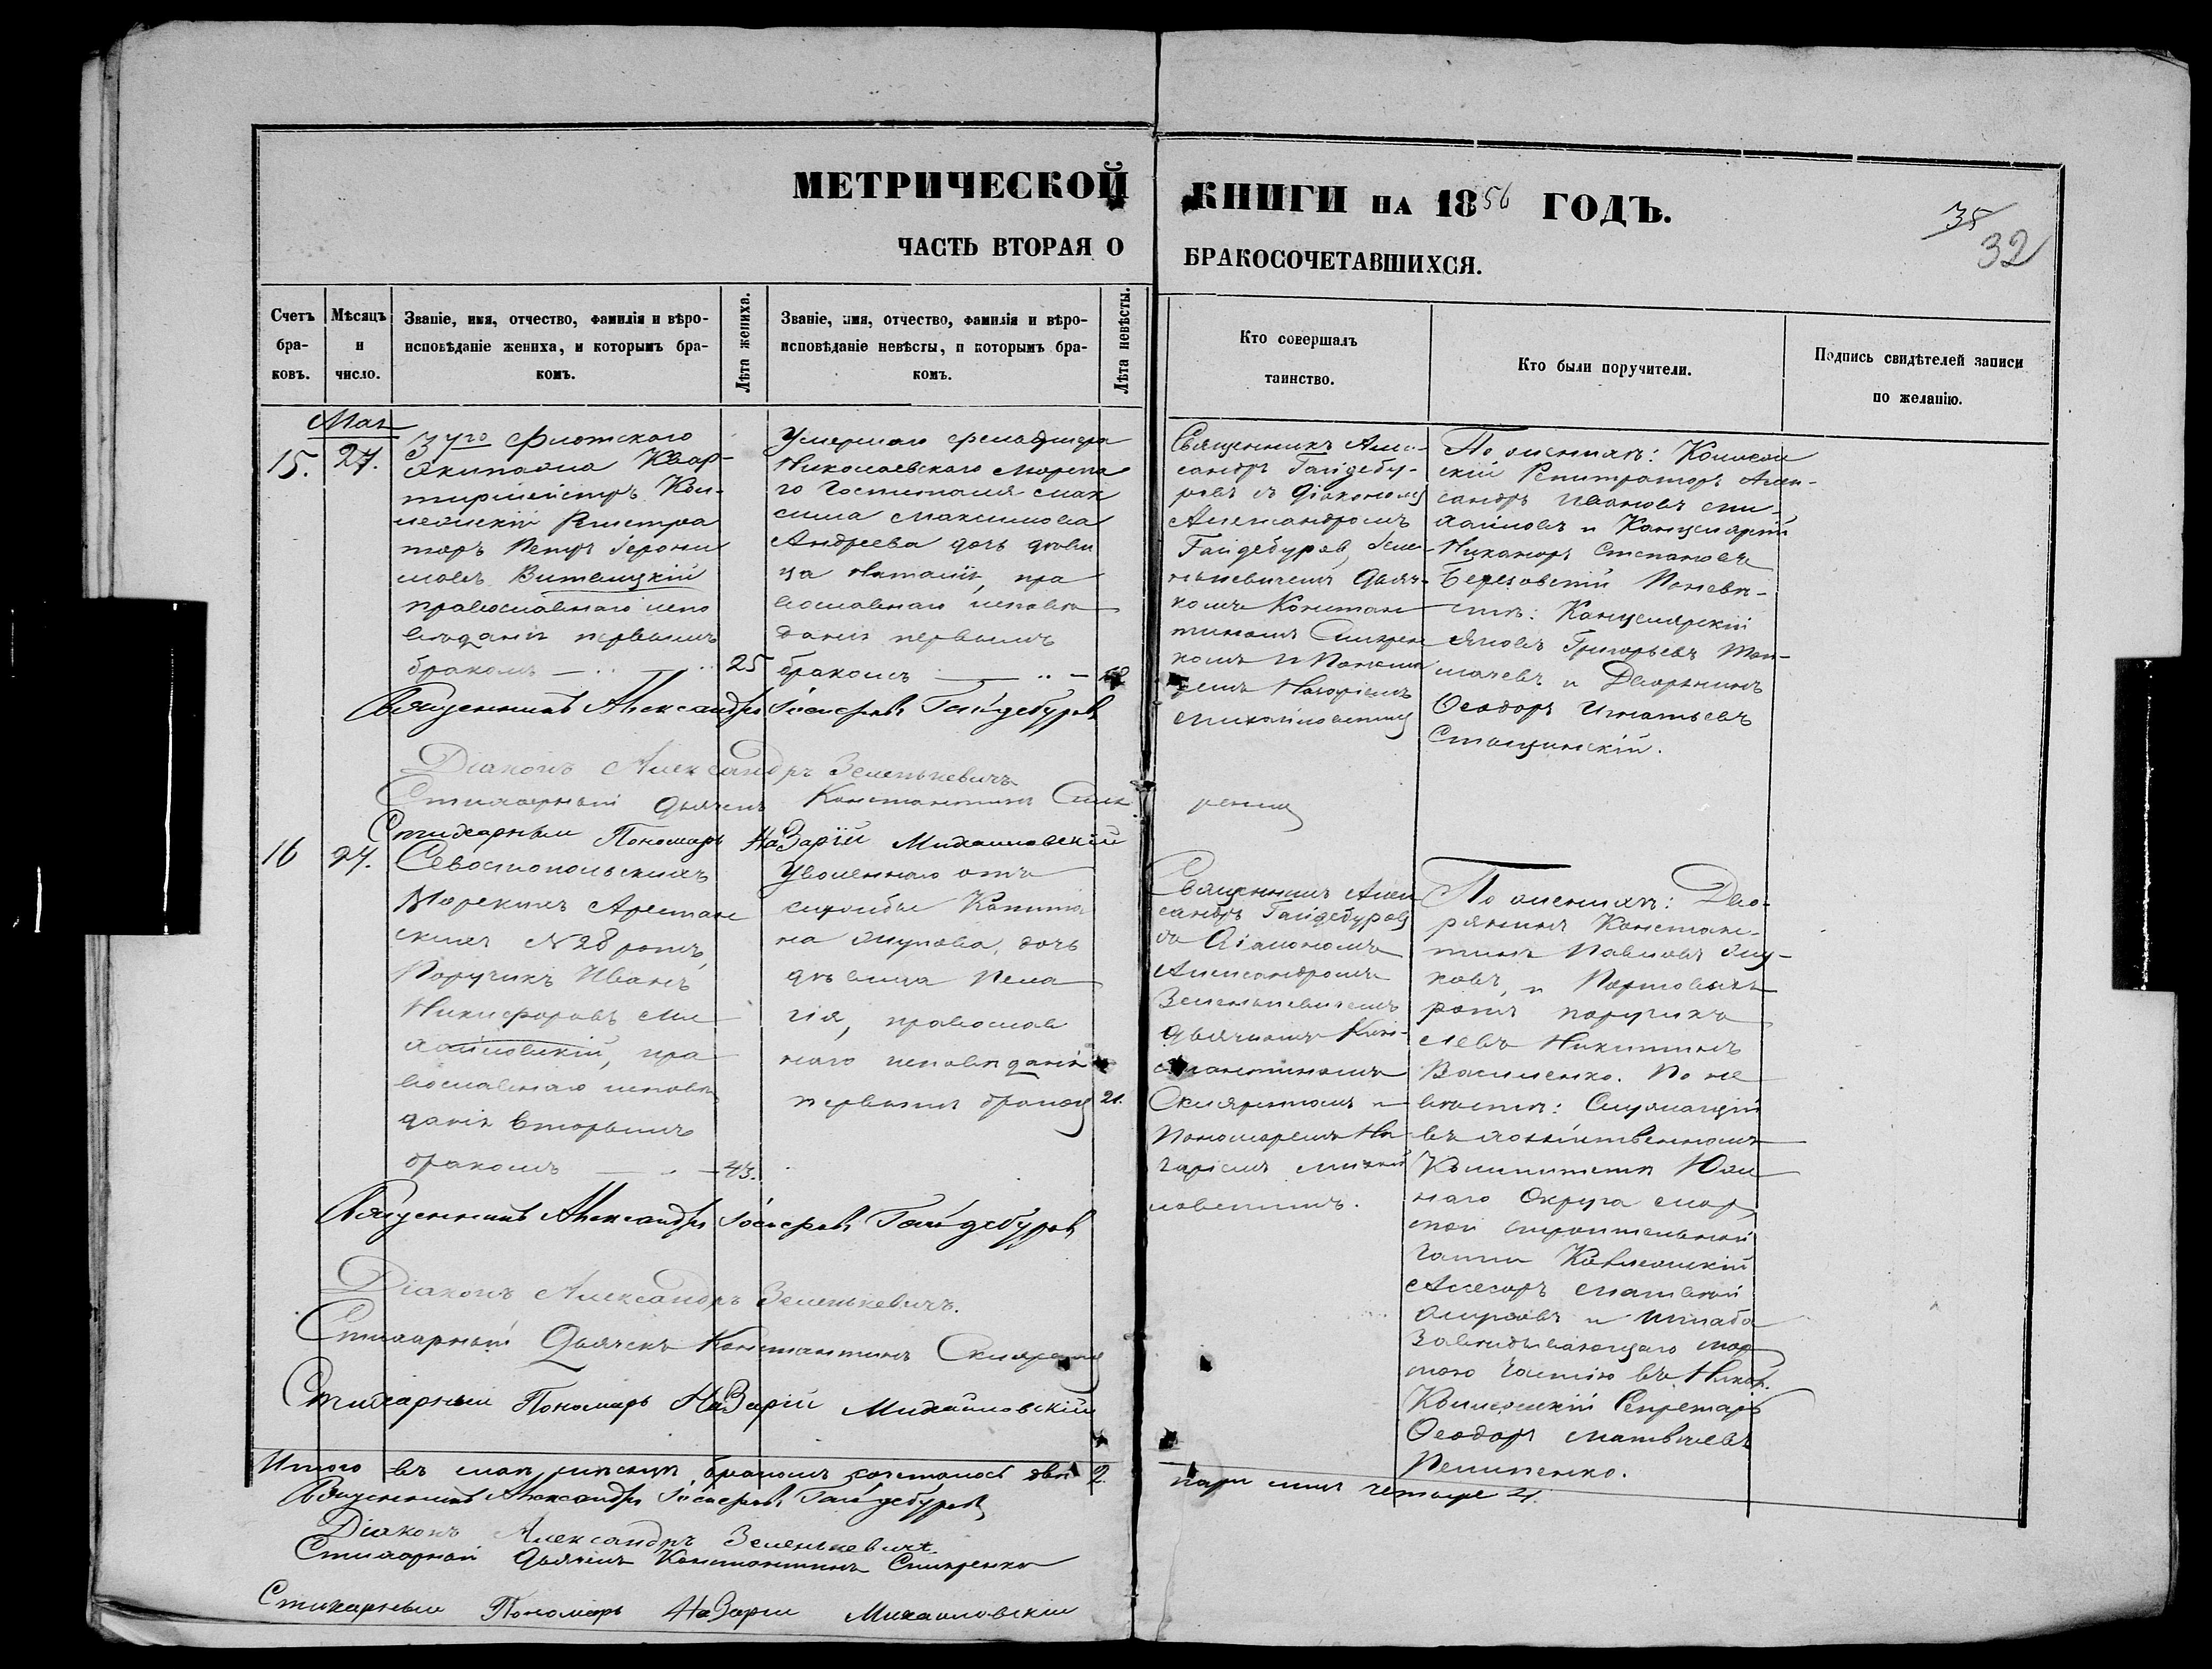 МЕТРИЧЕСКОЙ КНИГИ НА 1856 ГОДЪ.
35
32
ЧАСТЬ ВТОРАЯ О БРАКОСОЧЕТАВШИХСЯ.
Счетъ
бра-
ковъ.
Мѣсяцъ
и
число.
Званіе, имя, отчество, фамилія и вѣро-
исповѣданіе жениха, и которымъ бра-
комъ.
Лѣта жениха.
Званіе, имя, отчество, фамилія и вѣро-
исповѣданіе невѣсты, и которымъ бра-
комъ.
Лѣта невѣсты.
Кто совершалъ
таинство.
Кто были поручители.
Подпись свидѣтелей записи
по желанію.
15.
27.
Флотскаго
Экипажа Квар-
тирмейстръ Кол-
лежскій Регистра
торъ Петръ Іерони
мовъ Витвицкій
православнаго испо
вѣданія первымъ
бракомъ
25
Умершаго фельдшера
Николаевскаго Морска
го Госпиталя Мак
сима Максимова
Андреева дочь дѣви
ца Наталія, пра
вославнаго исповѣ
данія первымъ
бракомъ
Священникъ Алек-
сандръ Гайдебу-
ровъ съ Діакономъ
Александромъ
Гайдебуровъ, Зеле-
нькевичемъ Дьяч-
комъ Констан
тиномъ
комъ и Понома
ремъ Назаріемъ
Михайловскимъ
По женихѣ: Коллеж
скій Регистраторъ Алек-
сандръ Ивановъ Ми-
хайловъ и Канцелярскій
Никаноръ Степановъ
Березовскій По невѣ-
стѣ: Канцелярскій
Яковъ Григорьевъ Тол-
мачевъ и Дворянинъ
Ѳеодоръ Игнатьевъ
Священникъ Александръ Гайдебуровъ
Діаконъ Александръ Зеленькевичъ
Стихарный Дьячекъ Константинъ
Стихарный Пономарь Назарій Михайловскій
16
27.
Севастопольскихъ
Морскихъ Арестант
скихъ №28 ротъ,
Поручикъ Иванъ
Никифоровъ Ми
хайловскій, пра
вославнаго исповѣ
данія вторымъ
бракомъ
43.
Уволеннаго отъ
службы Капита
на Жукова, дочь
дѣвица Пела
гія, православ
наго исповѣданія
первымъ бракомъ
21.
Священникъ Алек
сандръ Гайдебуровъ
съ Діакономъ
Александромъ
Зеленькевичемъ
Дьячкомъ Кон-
стантиномъ
Пономаремъ На
заріемъ Михай
ловскимъ.
По женихѣ: Дво-
рянинъ Констан-
тинъ Павловъ Жу-
ковъ, и Портовыхъ
ротъ поручикъ
Левъ Никитинъ
Василенко. По не
вѣстѣ: Служащій
въ хозяйственномъ
Комитетѣ Юж
наго Округа Мор
ской строительной
части Коллежскій
Асесоръ Матвей
и Штаба
Завѣдывающаго Мор
скою частію въ Никол.
Коллежскій Секретарь
Ѳеодоръ Матвѣевъ
Пилипенко.
Священникъ Александръ Гайдебуровъ
Діаконъ Александръ Зеленькевичъ.
Стихарный Дьячекъ Константинъ
Стихарный Пономарь Назарій Михайловскій
Итого въ маѣ мѣсяцѣ бракомъ сочеталось двѣ 2.
четыре 4.
Священникъ Александръ Гайдебуровъ
Діаконъ Александръ Зеленькевичъ
Стихарный Дьячекъ Константинъ
Стихарный Пономарь Назарій Михайловскій